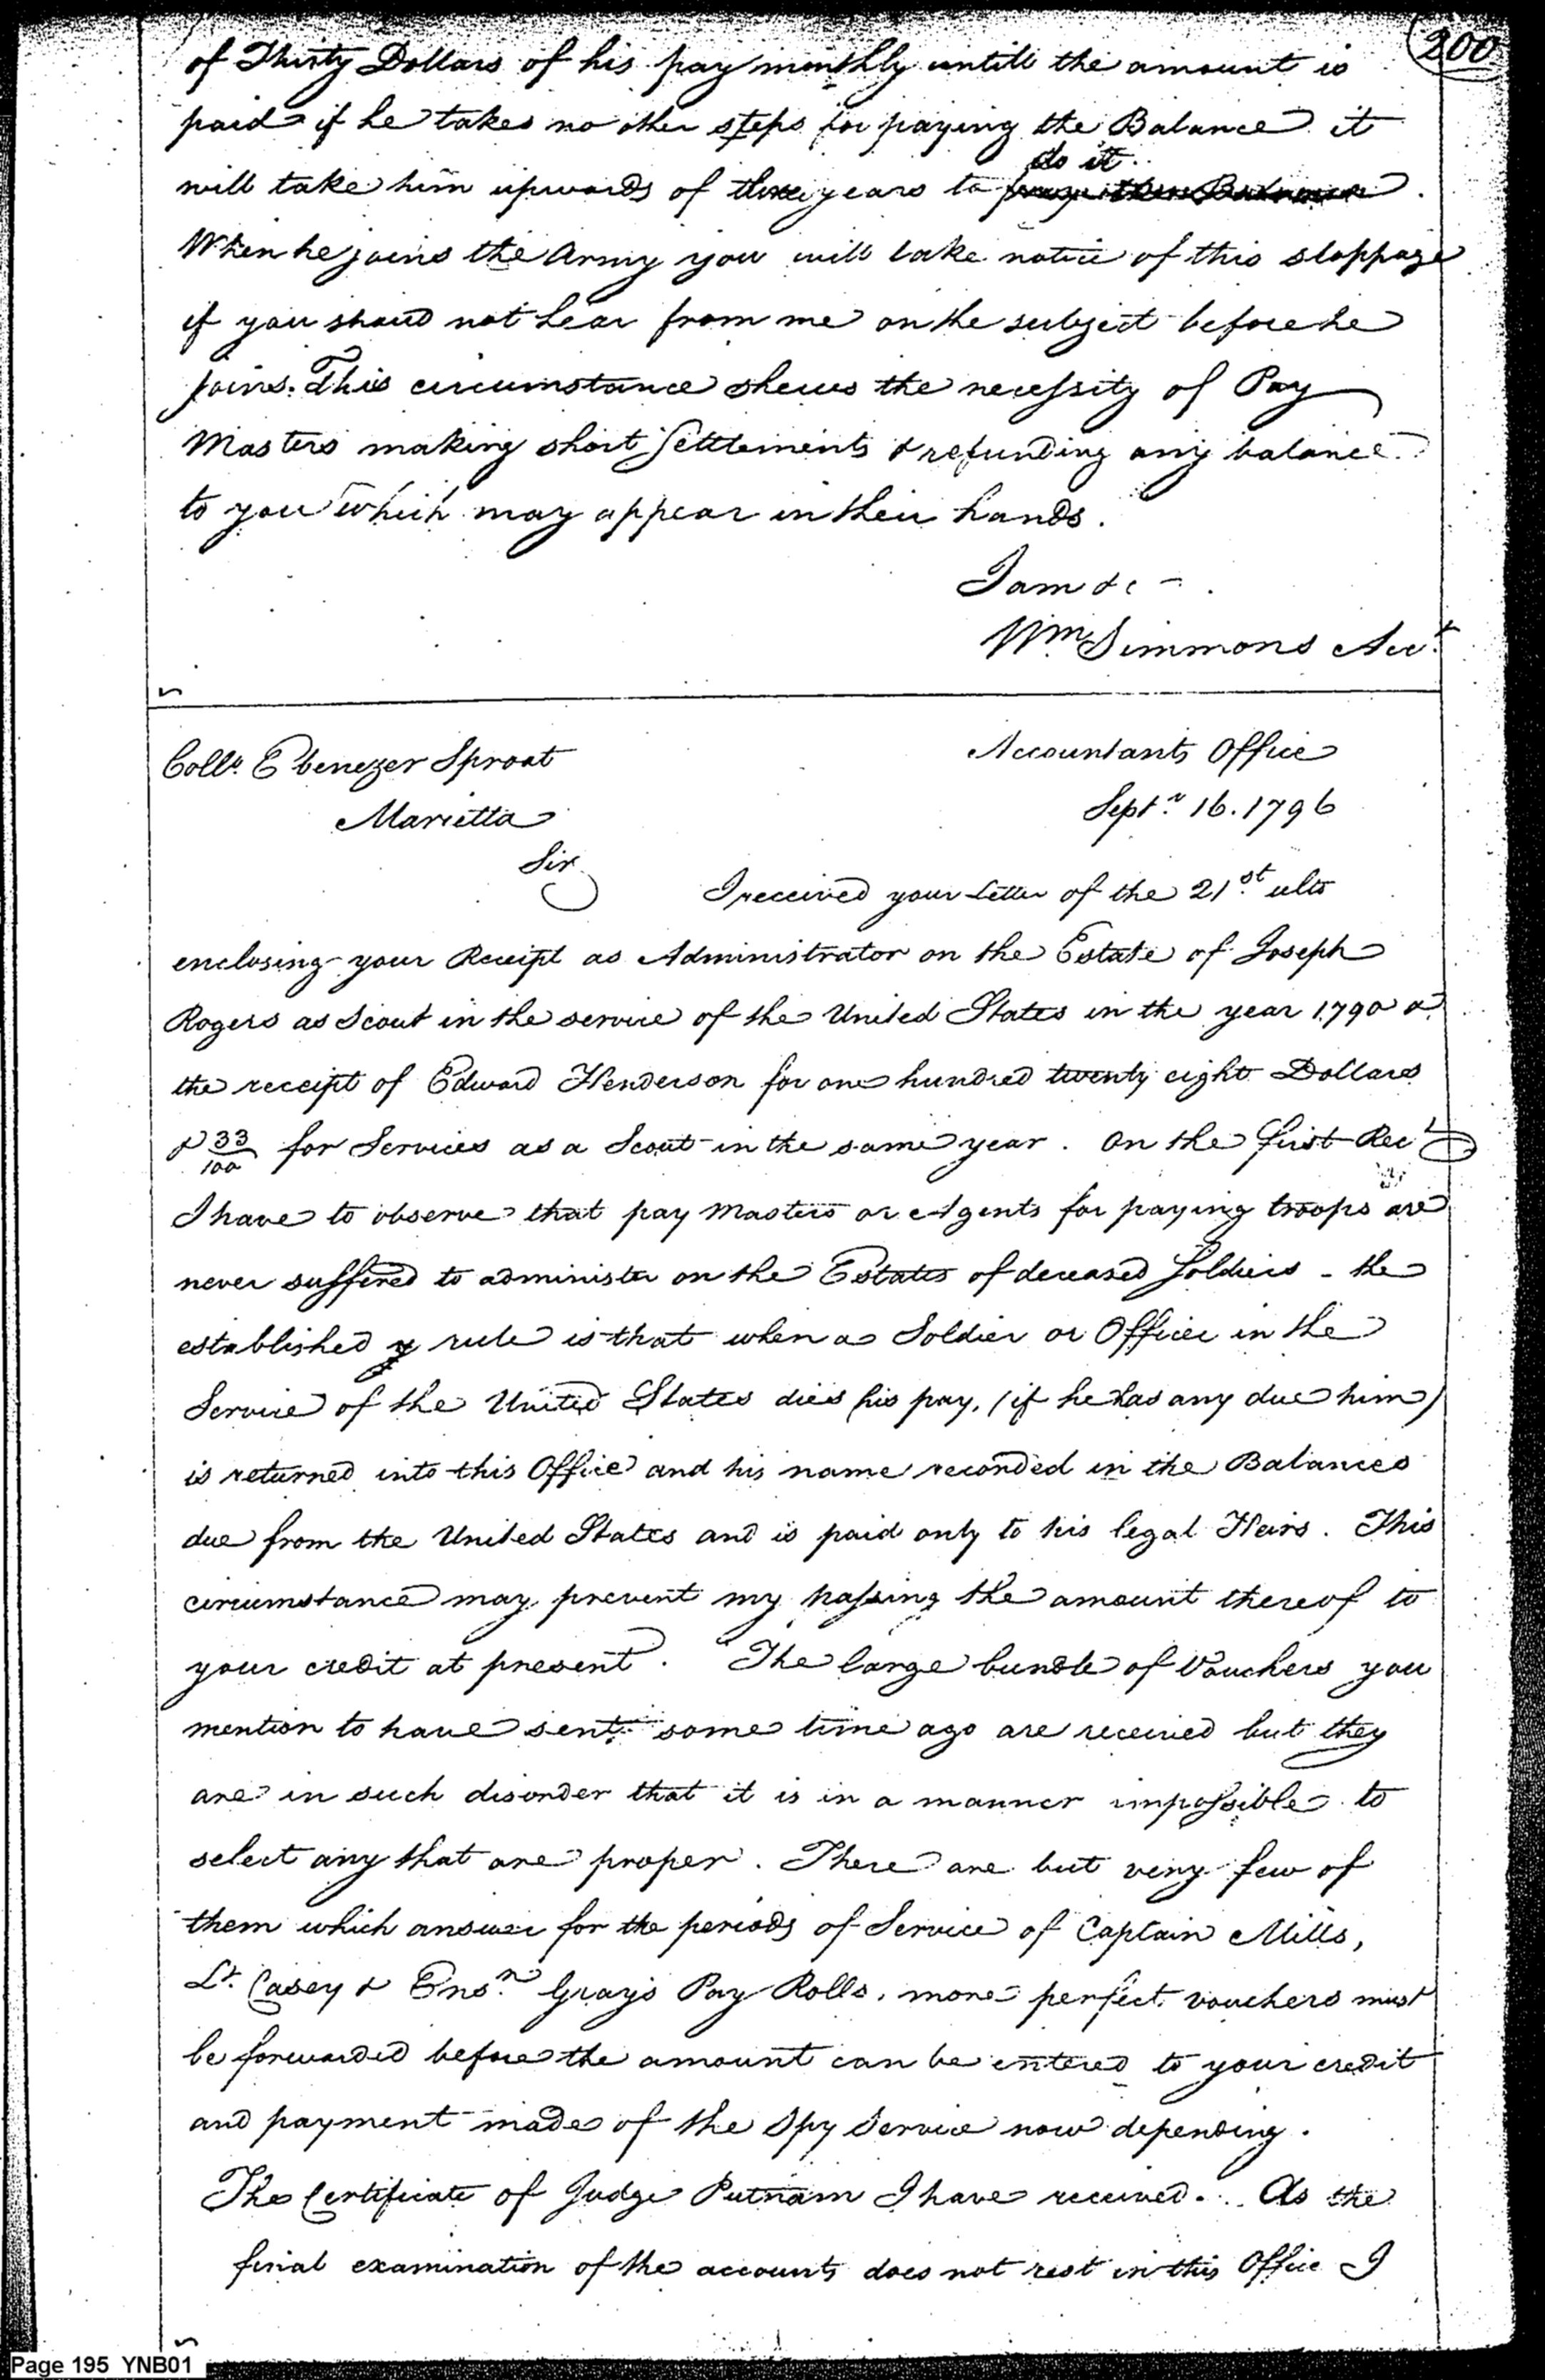 200
of Thirty Dollars of his pay monthly untill the amount is
paid if he takes no other steps for paying the Balance it
do it
will take him upwards of three years to
When he joins the Army you will take notice of this stoppage
if you shoud not hear from me on the subject before he
joins. This circumstance shews the necessity of Pay
Masters making short Settlements & refunding any balance
to you which may appear in their hands.
I am &c -
Wm Simmons Acct
Collo. Ebenezer Sproat
Accountants Office
Marietta
Septr 16. 1796
Sir
I received your Letter of the 21st ulto
enclosing your Receipt as Administrator on the Estate of Joseph
Rogers as Scout in the service of the United States in the year 1790 &
the receipt of Edward Henderson for one hundred twenty eight Dollars
& 33/100 for Services as a Scout in the same year. On the first Rect
I have to observe that pay Masters or Agents for paying troops are
never suffered to administer on the Estates of deceased Soldiers - the
established rule is that when a Soldier or Officer in the
Service of the United States dies his pay, (if he has any due him)
is returned into this Office and his name recorded in the Balances
due from the United States and is paid only to his legal Heirs. This
circumstance may prevent my passing the amount thereof to
your credit at present. The large bundle of Vouchers you
mention to have sent some time ago are received but they
are in such disorder that it is in a manner impossible to
select any that are proper. There are but very few of
them which answer for the periods of Service of Captain Mills,
Lt. Casey & Ensn. Grays Pay Rolls, more perfect vouchers must
be forwarded before the amount can be entered to your credit
and payment made of the Spy Service now depending.
The Certificate of Judge Putnam I have received. As the
final examination of the accounts does not rest in this Office I
Page 195 YNB01